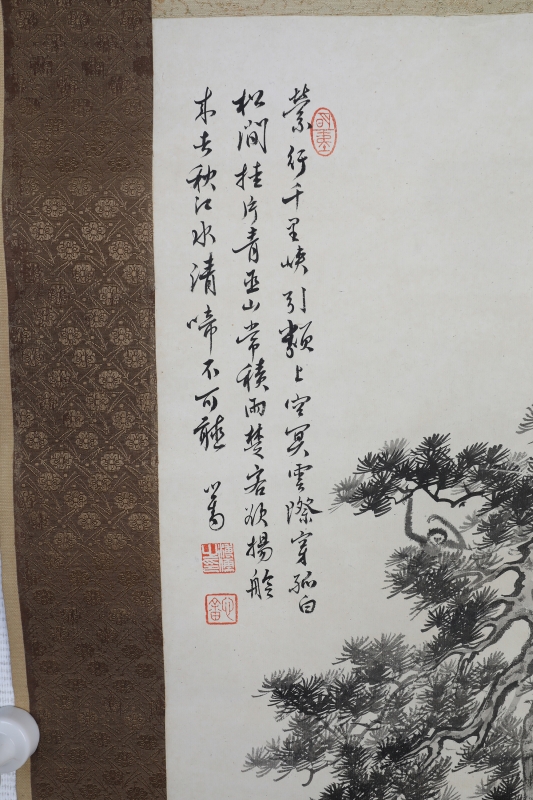 縈行千里峽引類上空冥雲際穿孤白
松間挂片青巫山常積雨楚客欲揚舲
秋江水清啼不可聽 心畬
溥儒之印
心畬